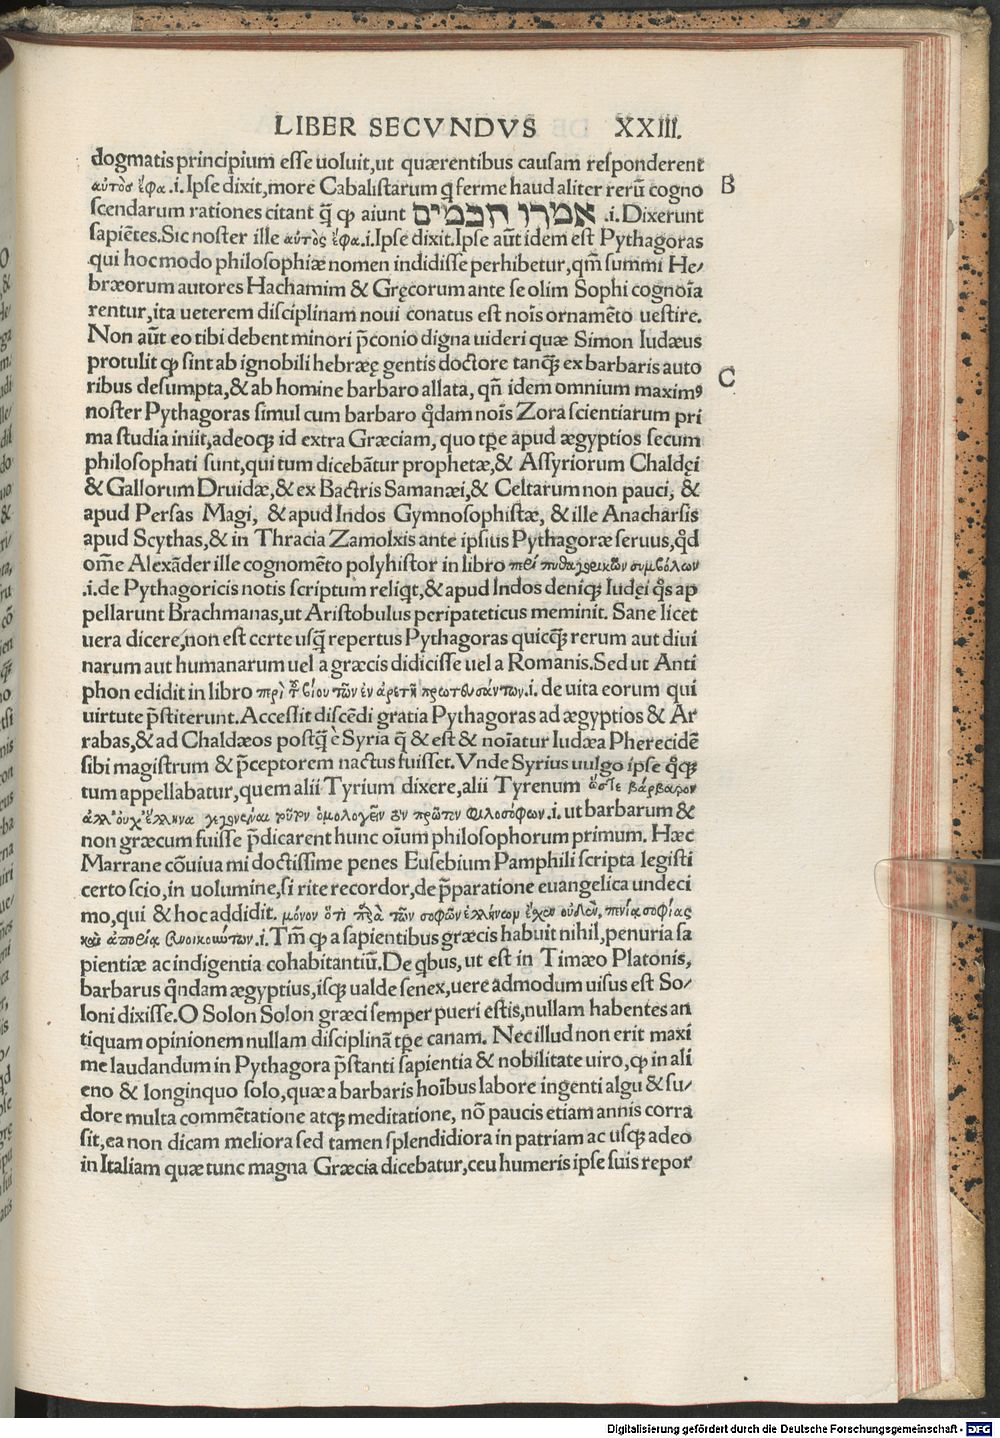 LIBER SECVNDVS XXIII.
dogmatis principium esse uoluit,ut quærentibus causam responderent
αὐτὸσ ἔφα.i.Ipse dixit,more Cabalistarum q̃ ferme haud aliter rerũ cogno
B
scendarum rationes citant q̃ ꝙ aiunt אמרו חכמים .i.Dixerunt
sapiẽtes.Sic noster ille αὐτὸς ἔφα.i.Ipse dixit.Ipse aũt idem est Pythagoras
qui hoc modo philosophiæ nomen indidisse perhibetur,qm̃ summi He/
bræorum autores Hachamim & Gręcorum ante se olim Sophi cognoĩa
rentur,ita ueterem disciplinam noui conatus est noĩs ornamẽto uestire.
Non aũt eo tibi debent minori p̃conio digna uideri quæ Simon Iudæus
protulit ꝙ sint ab ignobili hebræę gentis doctore tanq̃ ex barbaris auto
C
ribus desumpta,& ab homine barbaro allata, qñ idem omnium maximꝰ
noster Pythagoras simul cum barbaro q̃dam noĩs Zora scientiarum pri
ma studia iniit,adeoqꝫ id extra Græciam, quo tp̃e apud ægyptios secum
philosophati sunt,qui tum dicebãtur prophetæ,& Assyriorum Chaldęi
& Gallorum Druidæ,& ex Bactris Samanæi,& Celtarum non pauci, &
apud Persas Magi, & apud Indos Gymnosophistæ, & ille Anacharsis
apud Scythas,& in Thracia Zamolxis ante ipsius Pythagoræ seruus,q̃d
om̃e Alexãder ille cognomẽto polyhistor in libro πεὶ πυθαγορικῶν συμβόλων
.i.de Pythagoricis notis scriptum reliq̃t,& apud Indos deniqꝫ Iudęi q̃s ap
pellarunt Brachmanas,ut Aristobulus peripateticus meminit. Sane licet
uera dicere,non est certe usq̃ repertus Pythagoras quicq̃ rerum aut diui
narum aut humanarum uel a græcis didicisse uel a Romanis.Sed ut Anti
phon edidit in libro περὶ τ βίου τῶν ἐν ἀρετῇ πρωτευσάντων.i. de uita eorum qui
uirtute p̃stiterunt.Accessit discẽdi gratia Pythagoras ad ægyptios & Ar
rabas,& ad Chaldæos postq̃ è Syria q̃ & est & noĩatur Iudæa Pherecidẽ
sibi magistrum & p̃ceptorem nactus fuisset.Vnde Syrius uulgo ipse q̃qꝫ
tum appellabatur,quem alii Tyrium dixere,alii Tyrenum ὥστε βάρβαρον
ἀλλ' οὐχ' ἕλληνα γεγονέναι ὁμολογεῖν τὸν πρῶτον φιλοσόφων.i. ut barbarum &
non græcum fuisse p̃dicarent hunc oĩum philosophorum primum. Hæc
Marrane cõuiua mi doctissime penes Eusebium Pamphili scripta legisti
certo scio,in uolumine,si rite recordor,de p̃paratione euangelica undeci
mo,qui & hoc addidit. μόνον ὅτι παρὰ τῶν σοφῶν ἑλλήνων ἔχεν οὐδέν, πενία σοφίας
καὶ ἀπορία συνοικούντων.i.Tm̃ ꝙ a sapientibus græcis habuit nihil,penuria sa
pientiæ ac indigentia cohabitantiũ.De q̃bus,ut est in Timæo Platonis,
barbarus q̃ndam ægyptius,isqꝫ ualde senex,uere admodum uisus est So/
loni dixisse.O Solon Solon græci semper pueri estis,nullam habentes an
tiquam opinionem nullam disciplinã tp̃e canam. Nec illud non erit maxi
me laudandum in Pythagora p̃stanti sapientia & nobilitate uiro,ꝙ in ali
eno & longinquo solo,quæ a barbaris hoĩbus labore ingenti algu & su/
dore multa commẽtatione atqꝫ meditatione, nõ paucis etiam annis corra
sit,ea non dicam meliora sed tamen splendidiora in patriam ac usqꝫ adeo
in Italiam quæ tunc magna Græcia dicebatur,ceu humeris ipse suis repor
Digitalisierung gefördert durch die Deutsche Forschungsgemeinschaft - DFG